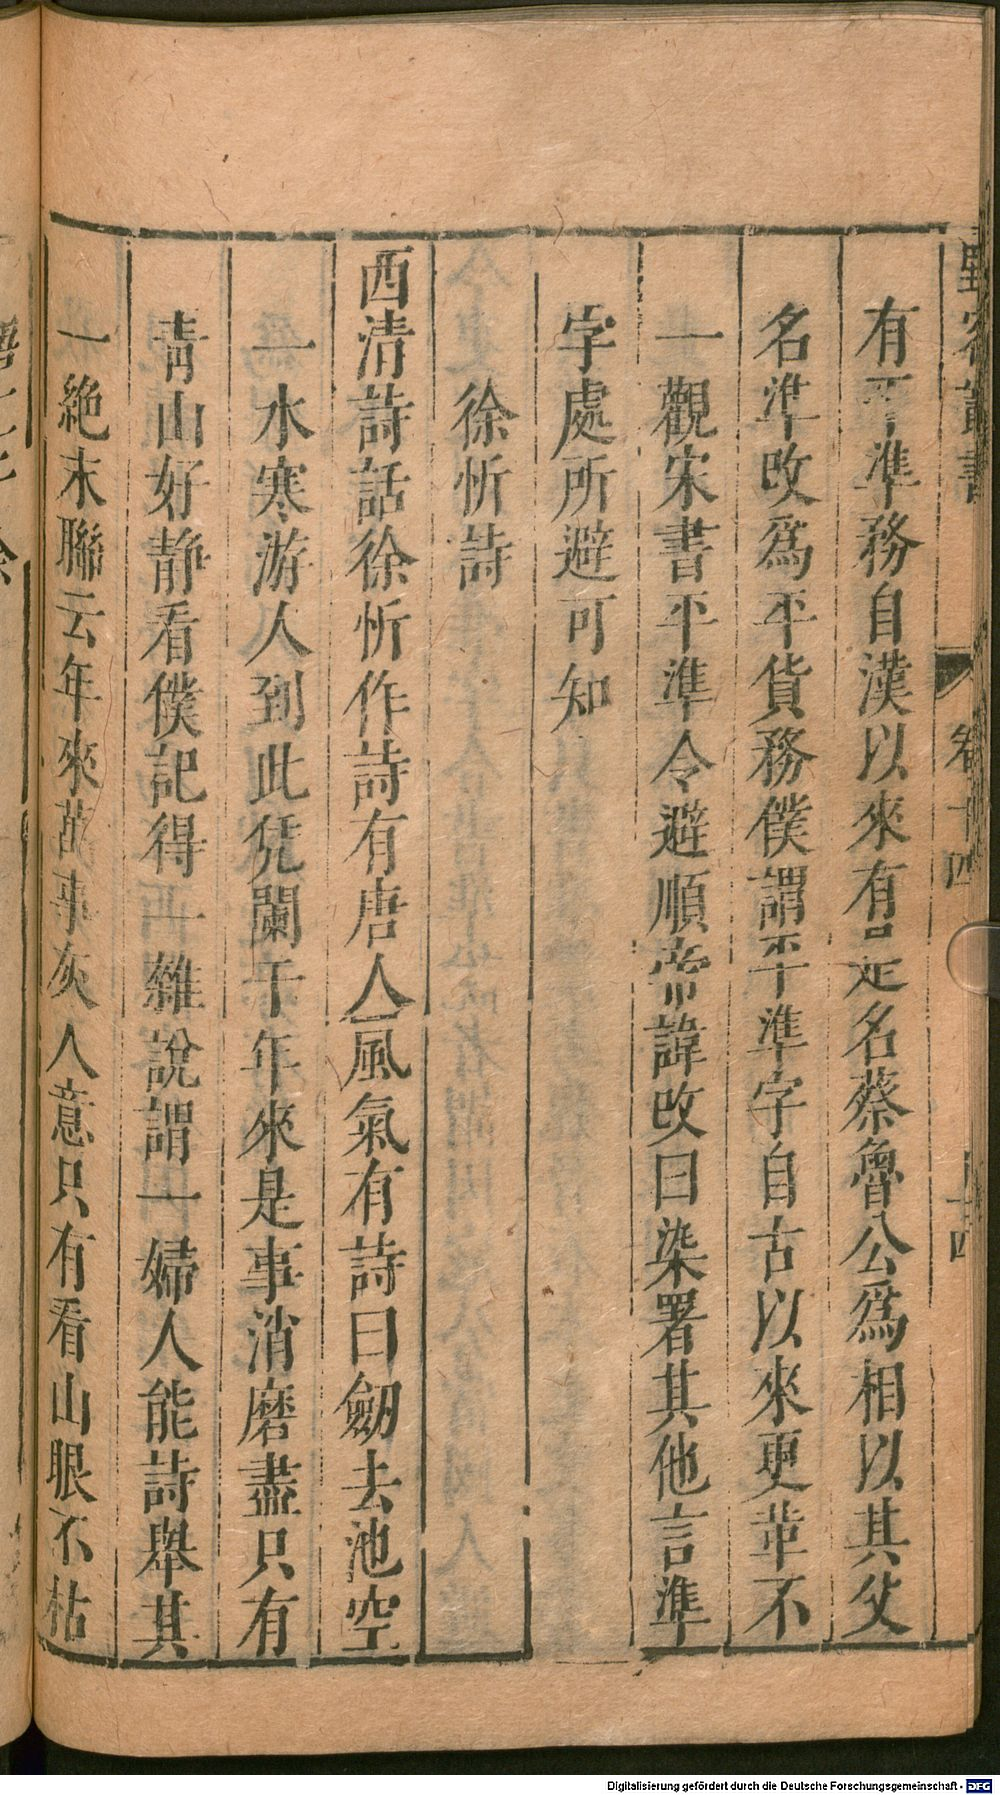 野客叢書
卷十四
十四
有平準務自漢以來有是名蔡魯公爲相以其父
名準改爲平貨務僕謂平準字自古以來更革不
一觀宋書平準令避順帝諱改曰染署其他言準
字處所避可知
徐忻詩
西清詩話徐忻作詩有唐人風氣有詩曰劒去池空
一水寒游人到此凭闌干年來是事消磨盡只有
青山好静看僕記得一雜說謂一婦人能詩舉其
一絶末聯云年來萬事灰人意只有看山眼不枯
Digitalisierung gefördert durch die Deutsche Forschungsgemeinschaft - DFG